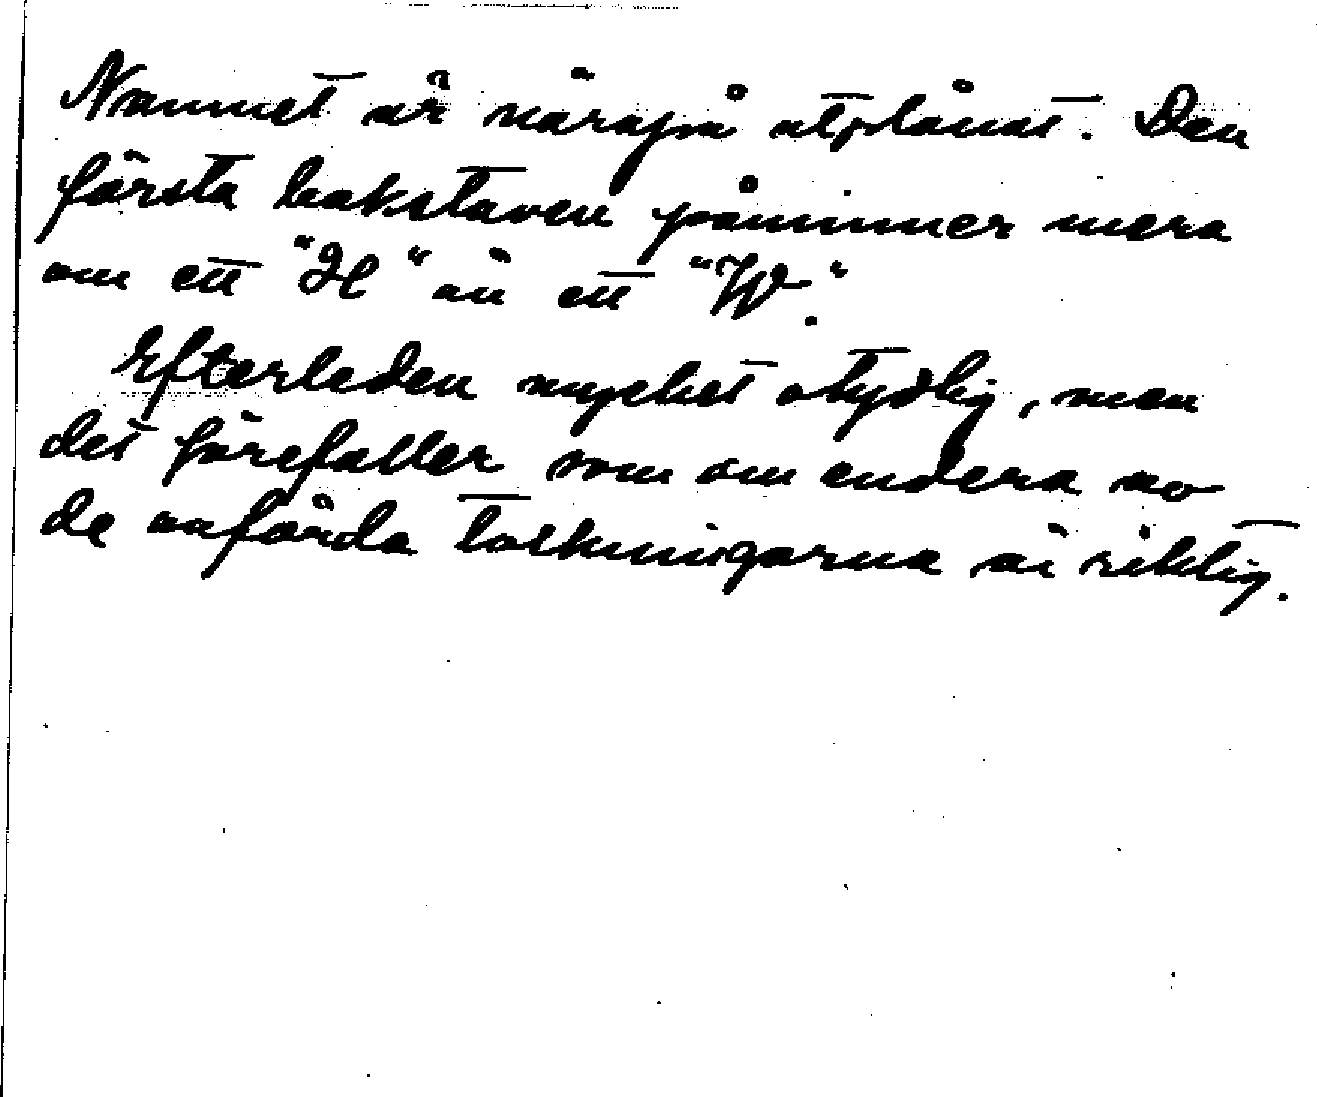 Namnet är närapå utplånat. Den
första bokstaven påminner mera
om ett "H" än ett "W".
Efterleden mycket otydlig, men
det förefaller som om endera av
de anförda tolkningarna är riktig.